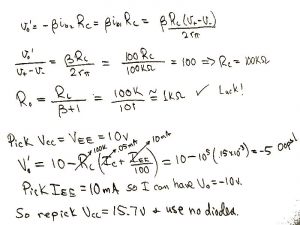 v₀' = -β i_{b2} R_C = β i_{b1} R_C = β R_C (v₊-v₋) / 2rπ
v₀' / v₊-v₋ = βR_C / 2rπ = 100R_C / 100KΩ = 100 => R_C = 100KΩ
R₀ = R_C / β+1 = 100K / 101 ≅ 1KΩ ✓ Luck!
Pick V_CC = V_EE = 10v
100K .05mA 10mA
V₀' = 10 - R_C (I_C + I_EE / 100) = 10 - 10⁵ (.15x10⁻³) = -5 Oops!
Pick I_EE = 10mA so I can have V₀ = -10v.
So repick V_CC = 15.7v & use no diodes.